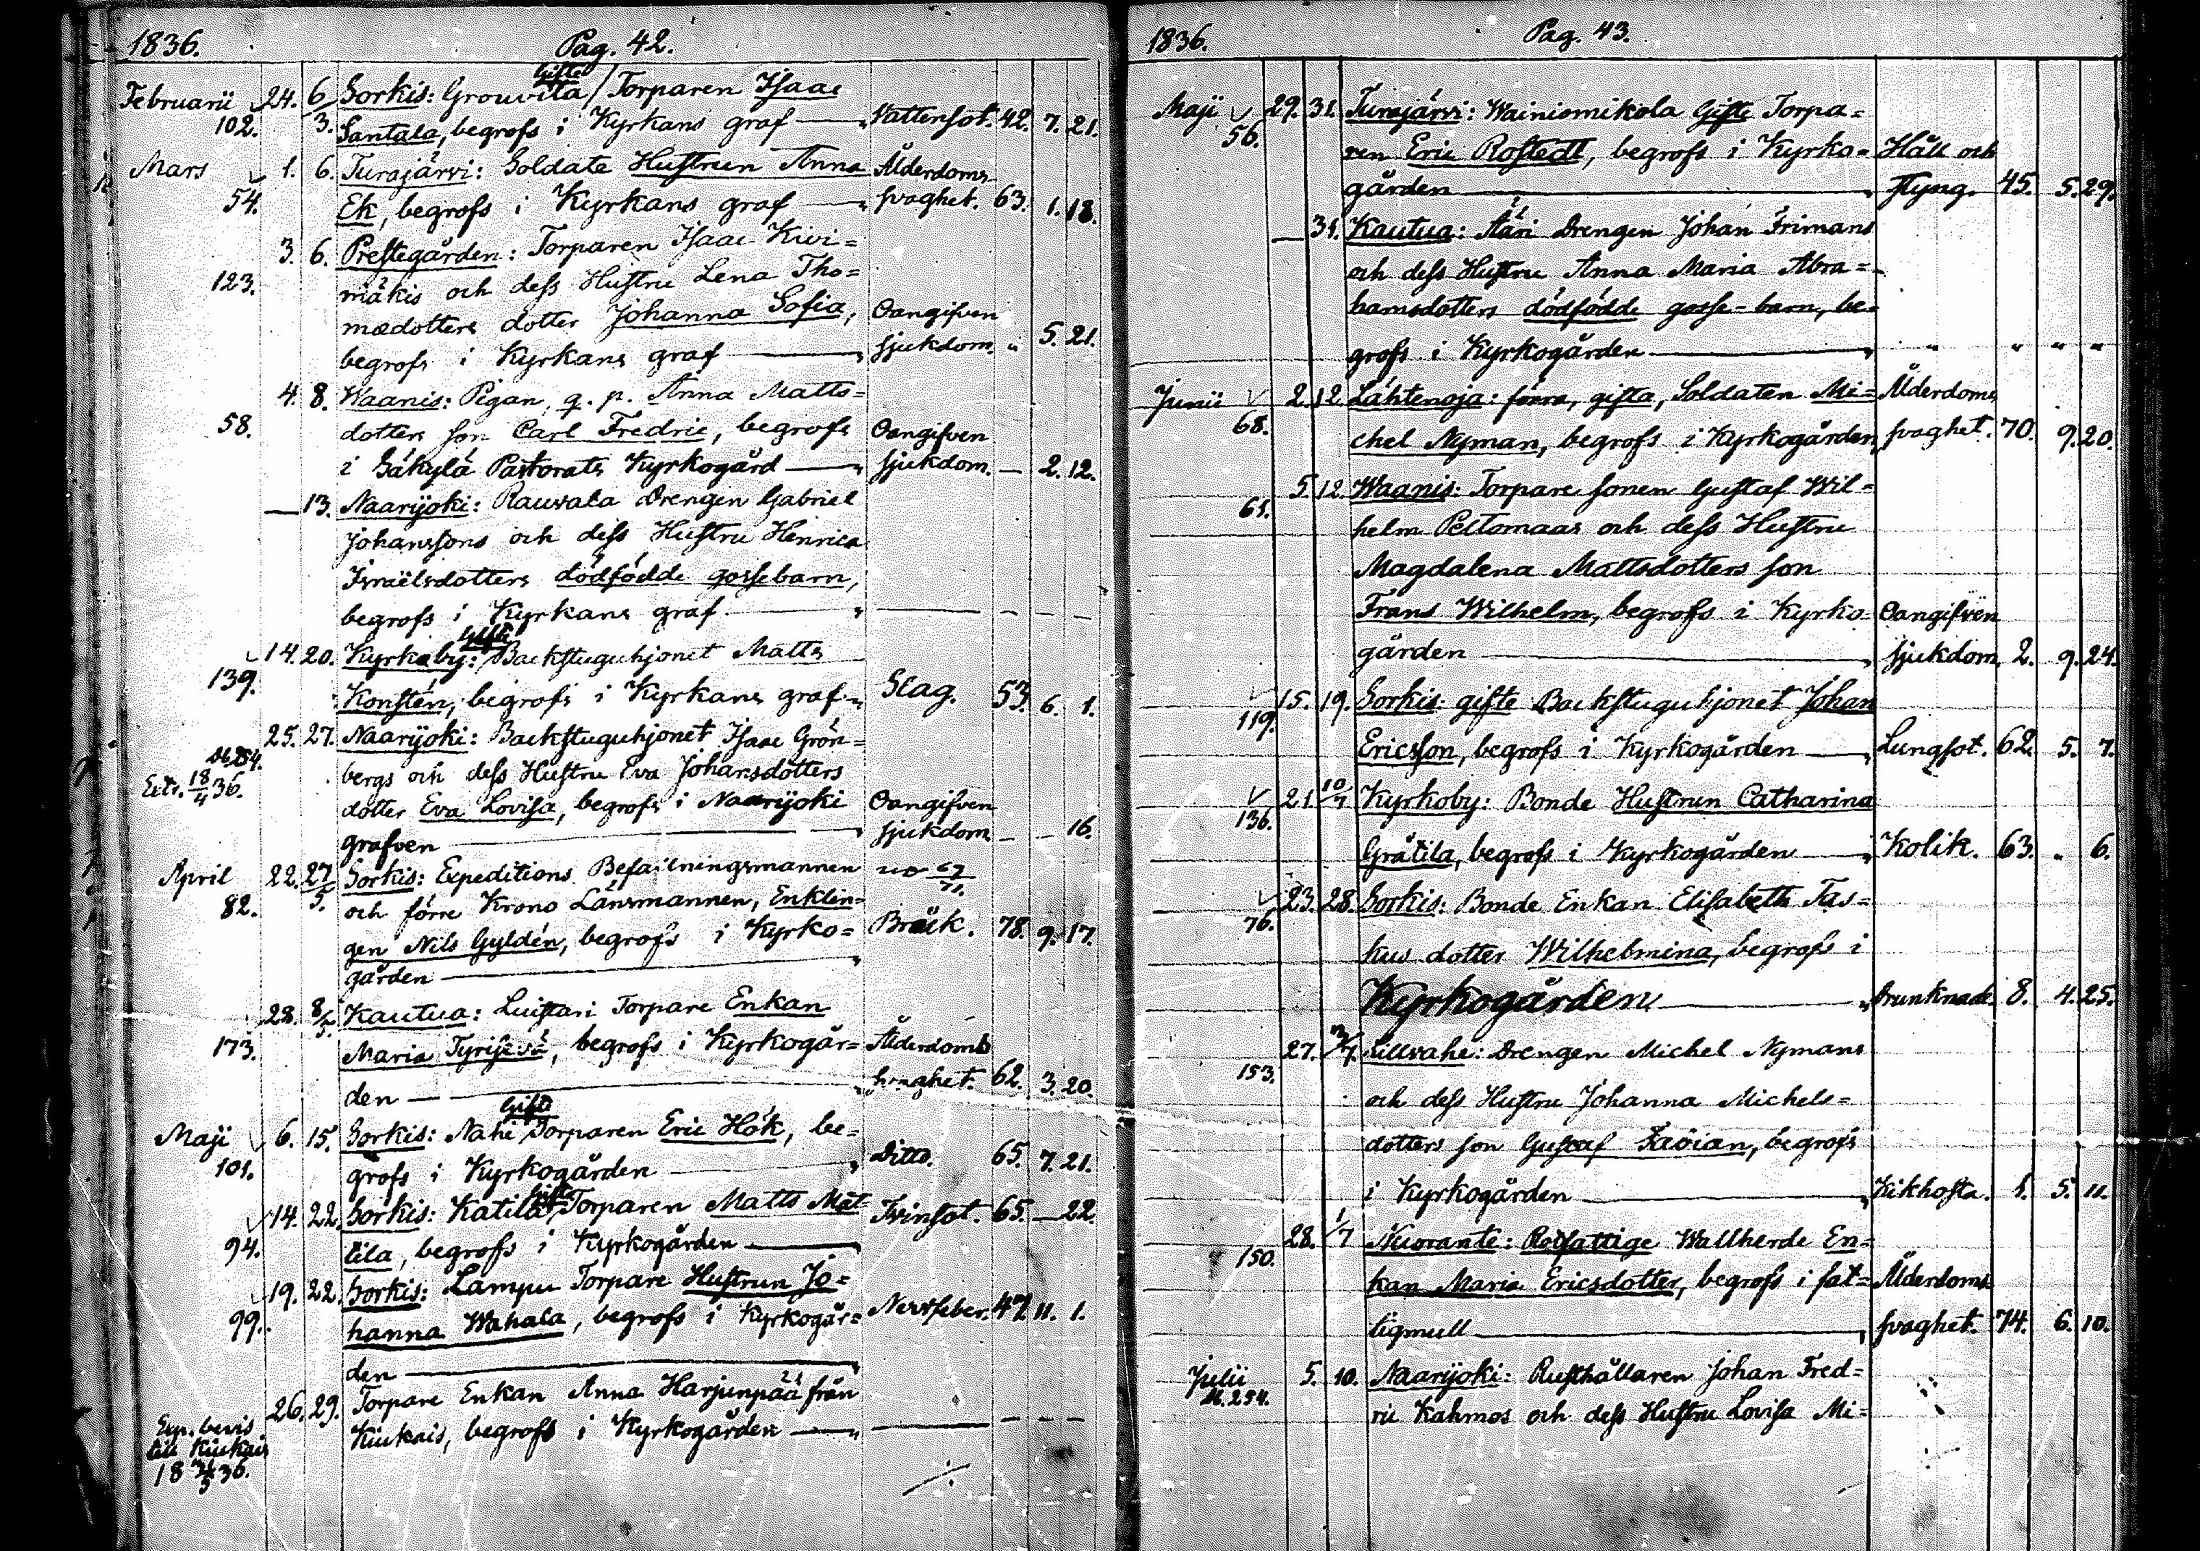 1836. Pag. 42.
Gifte
Februarii 24. 6/3. Sorkis: Grouvila / Torparen Isaac
102. Santala, begrofs i Kyrkans graf — Vattensot. 42. 7. 21.
Mars 1. 6. Turajärvi: Soldate Hustrun Anna Ålderdoms
54. Ek, begrofs i Kyrkans graf — svaghet. 63. 1. 18.
3. 6. Prestegården: Torparen Isaac Kivi=
123. mäkis och dess Hustru Lena Tho=
mædotters dotter Johanna Sofia, Oangifven
begrofs i Kyrkans graf — sjukdom. " 5. 21.
4. 8. Waanis: Pigan, q. p. Anna Matts=
58. dotters son Carl Fredric, begrofs Oangifven
i Säkylä Pastorats Kyrkogård — sjukdom. — 2. 12.
— 13. Naarijoki: Rauvala Drengen Gabriel
Johanssons och dess Hustru Henrica
Israëlsdotters dödfödde gossebarn,
begrofs i Kyrkans graf — — — —
Gifte
14. 20. Kyrkoby: Backstuguhjonet Matts
139. Konstén, begrofs i Kyrkans graf Slag. 53. 6. 1.
25. 27. Naarijoki: Backstuguhjonet Isaac Grön=
254. bergs och dess Hustru Eva Johansdotters
Extr. 18/4 36. dotter Eva Lovisa, begrofs i Naarijoki Oangifven
grafven — sjukdom — — 16.
April 22. 27/5. Sorkis: Expeditions Befallningsmannen
82. och förre Krono Länsmannen, Enklin=
gen Nils Gyldén, begrofs i Kyrko= Bråck. 78. 9. 17.
gården —
28. 8/5. Kautua: Luistari Torpare Enkan
173. Maria, begrofs i Kyrkogår= Ålderdoms
den — svaghet. 62. 3. 20.
Gifte
Maji 6. 15. Sorkis: Nahi Torparen Eric Hök, be=
101. grofs i Kyrkogården — Ditto. 65. 7. 21.
Gifte
14. 22. Sorkis: Katila Torparen Matts Mat= Tvinsot. 65. — 22.
94. tila, begrofs i Kyrkogården —
19. 22. Sorkis: Lampu Torpare Hustrun Jo=
99. hanna Wahala, begrofs i Kyrkogår= Nervfeber. 47. 11. 1.
den —
26. 29. Torpare Enkan Anna Harjunpää från
Exp. bevis Kiukais, begrofs i Kyrkogården — — — —
till Kiukais
18 36.
1836. Pag. 43.
Maji 29. 31. Turajärvi: Wainiomikola Gifte Torpa=
56. ren Eric Rostedt, begrofs i Kyrko= Håll och
gården — Styng. 45. 5. 29.
— 31. Kautua: Ääri Drengen Johan Frimans
och dess Hustru Anna Maria Abra=
hamsdotters dödfödde gosse-barn, be=
grofs i Kyrkogården — " " " "
Junii 2. 12. Lähtenoja: förra, gifta, Soldaten Mi= Ålderdoms
68. chel Nyman, begrofs i Kyrkogården, svaghet. 70. 9. 20.
5. 12. Waanis: Torpare sonen Gustaf Wil=
61. helm Peltomaas och dess Hustru
Magdalena Mattsdotters son
Frans Wilhelm, begrofs i Kyrko= Oangifven
gården — sjukdom, 2. 9. 24.
15. 19. Sorkis: gifte Backstuguhjonet Johan
119. Ericsson, begrofs i Kyrkogården — Lungsot. 62. 5. 7.
21. 10/7 Kyrkoby: Bonde Hustrun Catharina
136. Gråtila, begrofs i Kyrkogården — Kolik. 63. " 6.
23. 28. Sorkis: Bonde Enkan Elisabeth Tas=
76. kus dotter Wilhelmina, begrofs i
Kyrkogården — Drunknade. 8. 4. 25.
27. Lillvahe: Drengen Michel Nymans
153. och dess Hustru Johanna Michels=
dotters son Gustaf Fabian, begrofs
i Kyrkogården — Kikhosta. 1. 5. 11.
28. 1/7 Nuorante: Rotfattige Wallherde En=
150. kan Maria Ericsdotter, begrofs i fat= Ålderdoms
tigmull — svaghet. 74. 6. 10.
Julii 5. 10. Naarijoki: Rusthållaren Johan Fred=
254. ric Kahmos och dess Hustru Lovisa Mi=